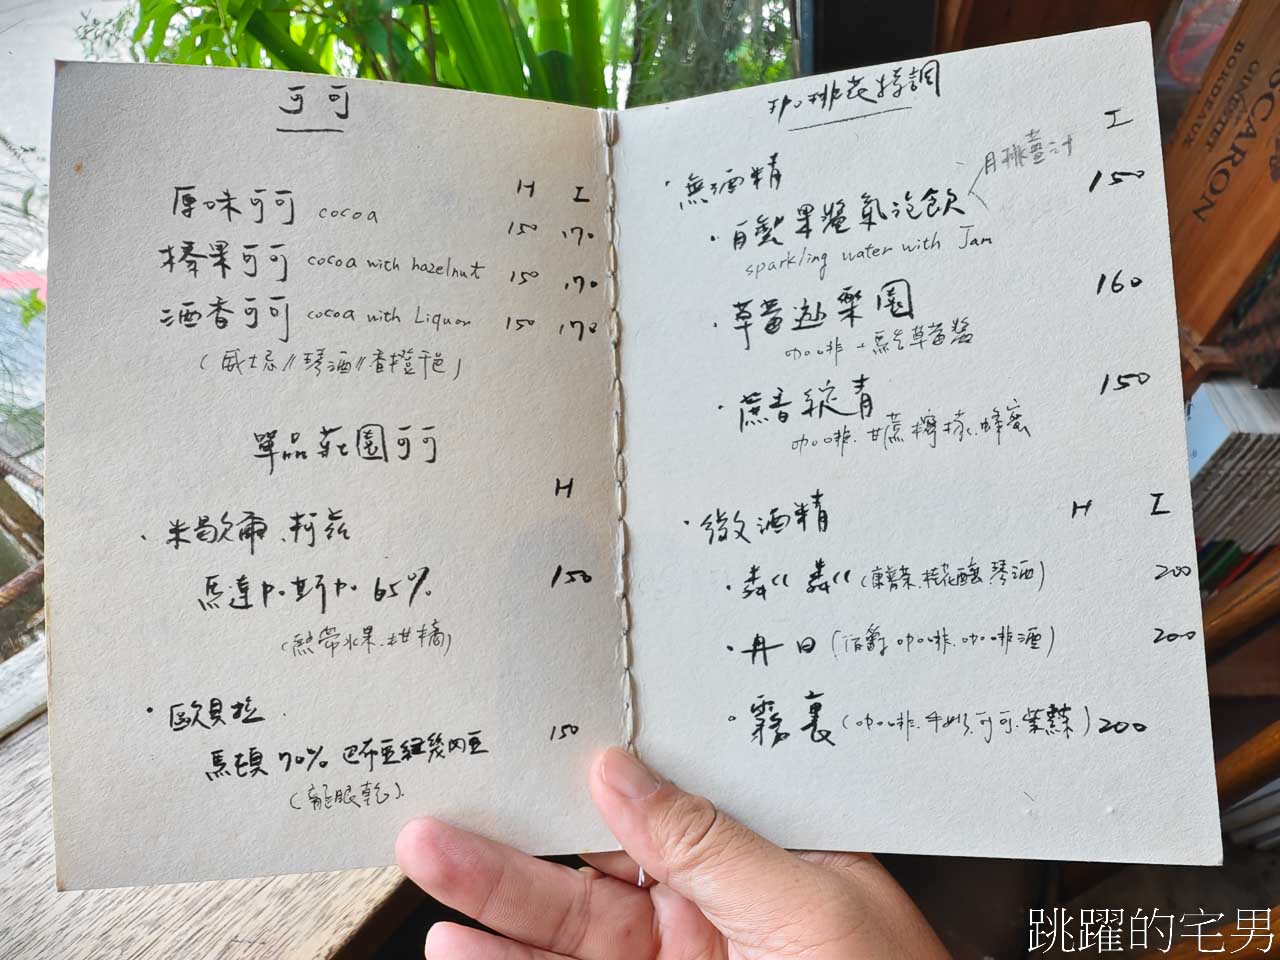 可可
H I
原味可可 cocoa 150 170
榛果可可 cocoa with hazelnut 150 170
酒香可可 cocoa with Liquor 150 170
(威士忌//琴酒//香橙干邑)
單品莊園可可
H
·米歇爾.柯茲
馬達加斯加 65% 150
(熱帶水果.柑橘)
·歐貝拉.
馬頓 70% 巴布亞紐幾內亞 150
(龍眼乾).
咖啡花特調
I
·無酒精
·自製果醬氣泡飲 150
月桃薑汁
sparkling water with Jam
·草莓遊樂園 160
咖啡.一點點草莓醬
·蔗香綻青 150
咖啡.甘蔗.檸檬.蜂蜜
·微酒精 H I
(康普茶.桂花釀.琴酒) 200
·丹日 (咖啡.咖啡酒) 200
·霧裏 (咖啡.牛奶.可可.紫蘇) 200
CARON
BORDEAUX
跳躍的宅男